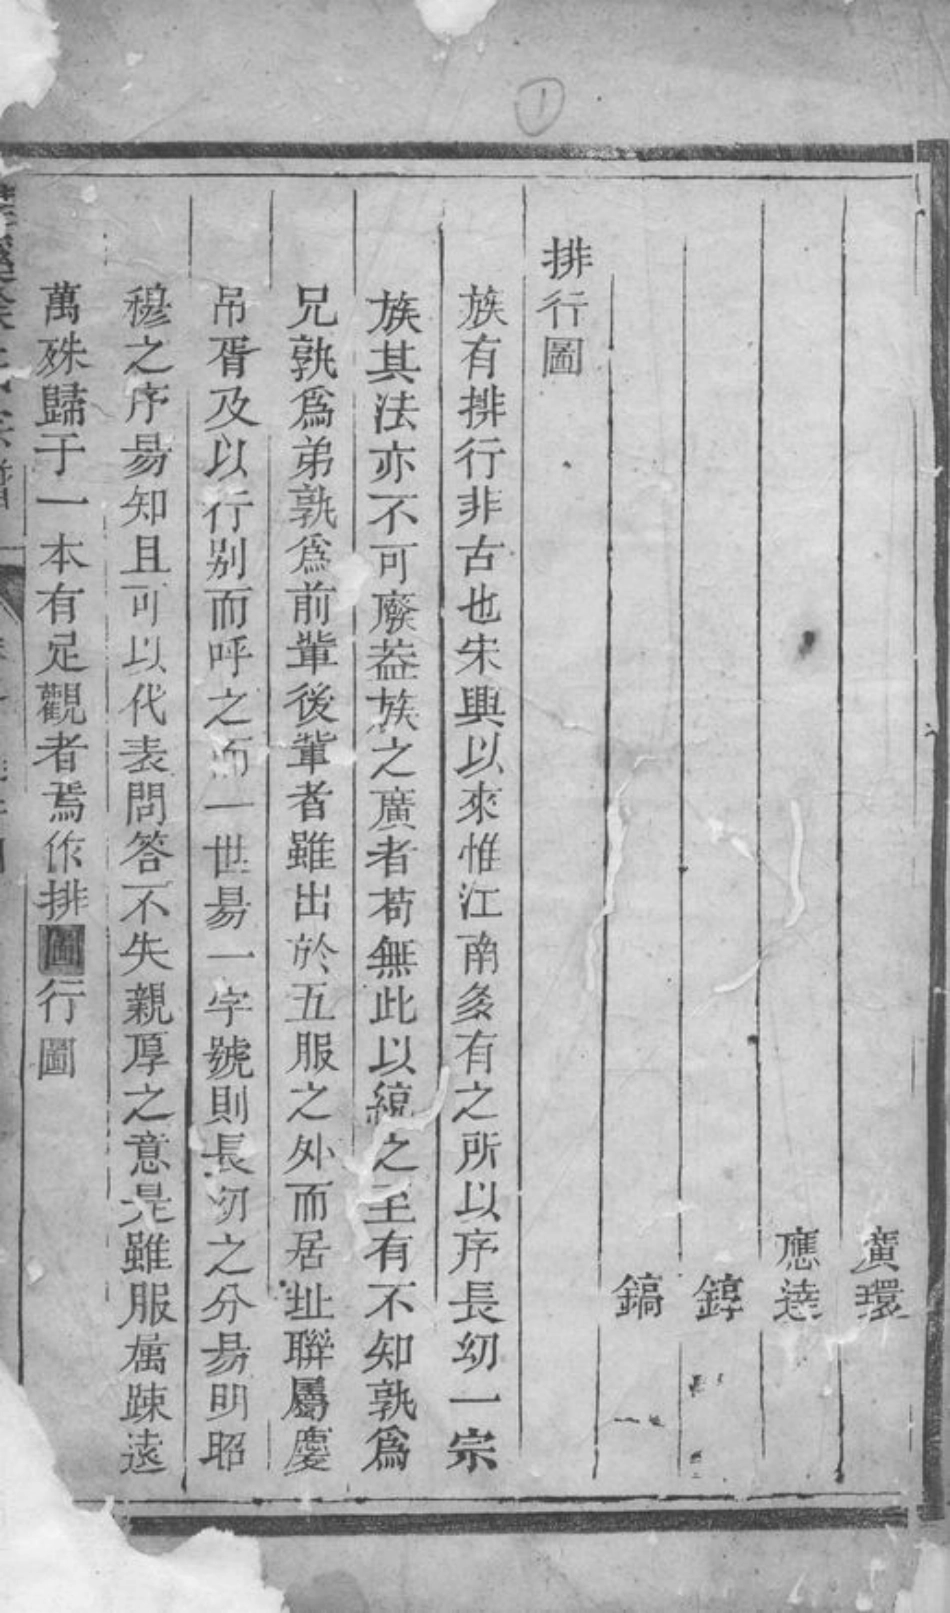 ①
廣環
應達
錞
鎬
排行圖
族有排行非古也宋興以來惟江南多有之所以序長幼一宗
族其法亦不可廢葢族之廣者苟無此以綂之至有不知孰爲
兄孰爲弟孰爲前軰後軰者雖出於五服之外而居址聯屬慶
吊胥及以行别而呼之而一世易一字號則長㓜之分易明昭
穆之序易知且可以代表問答不失親厚之意是雖服属踈遠
萬殊歸于一本有足觀者焉作排圖行圖